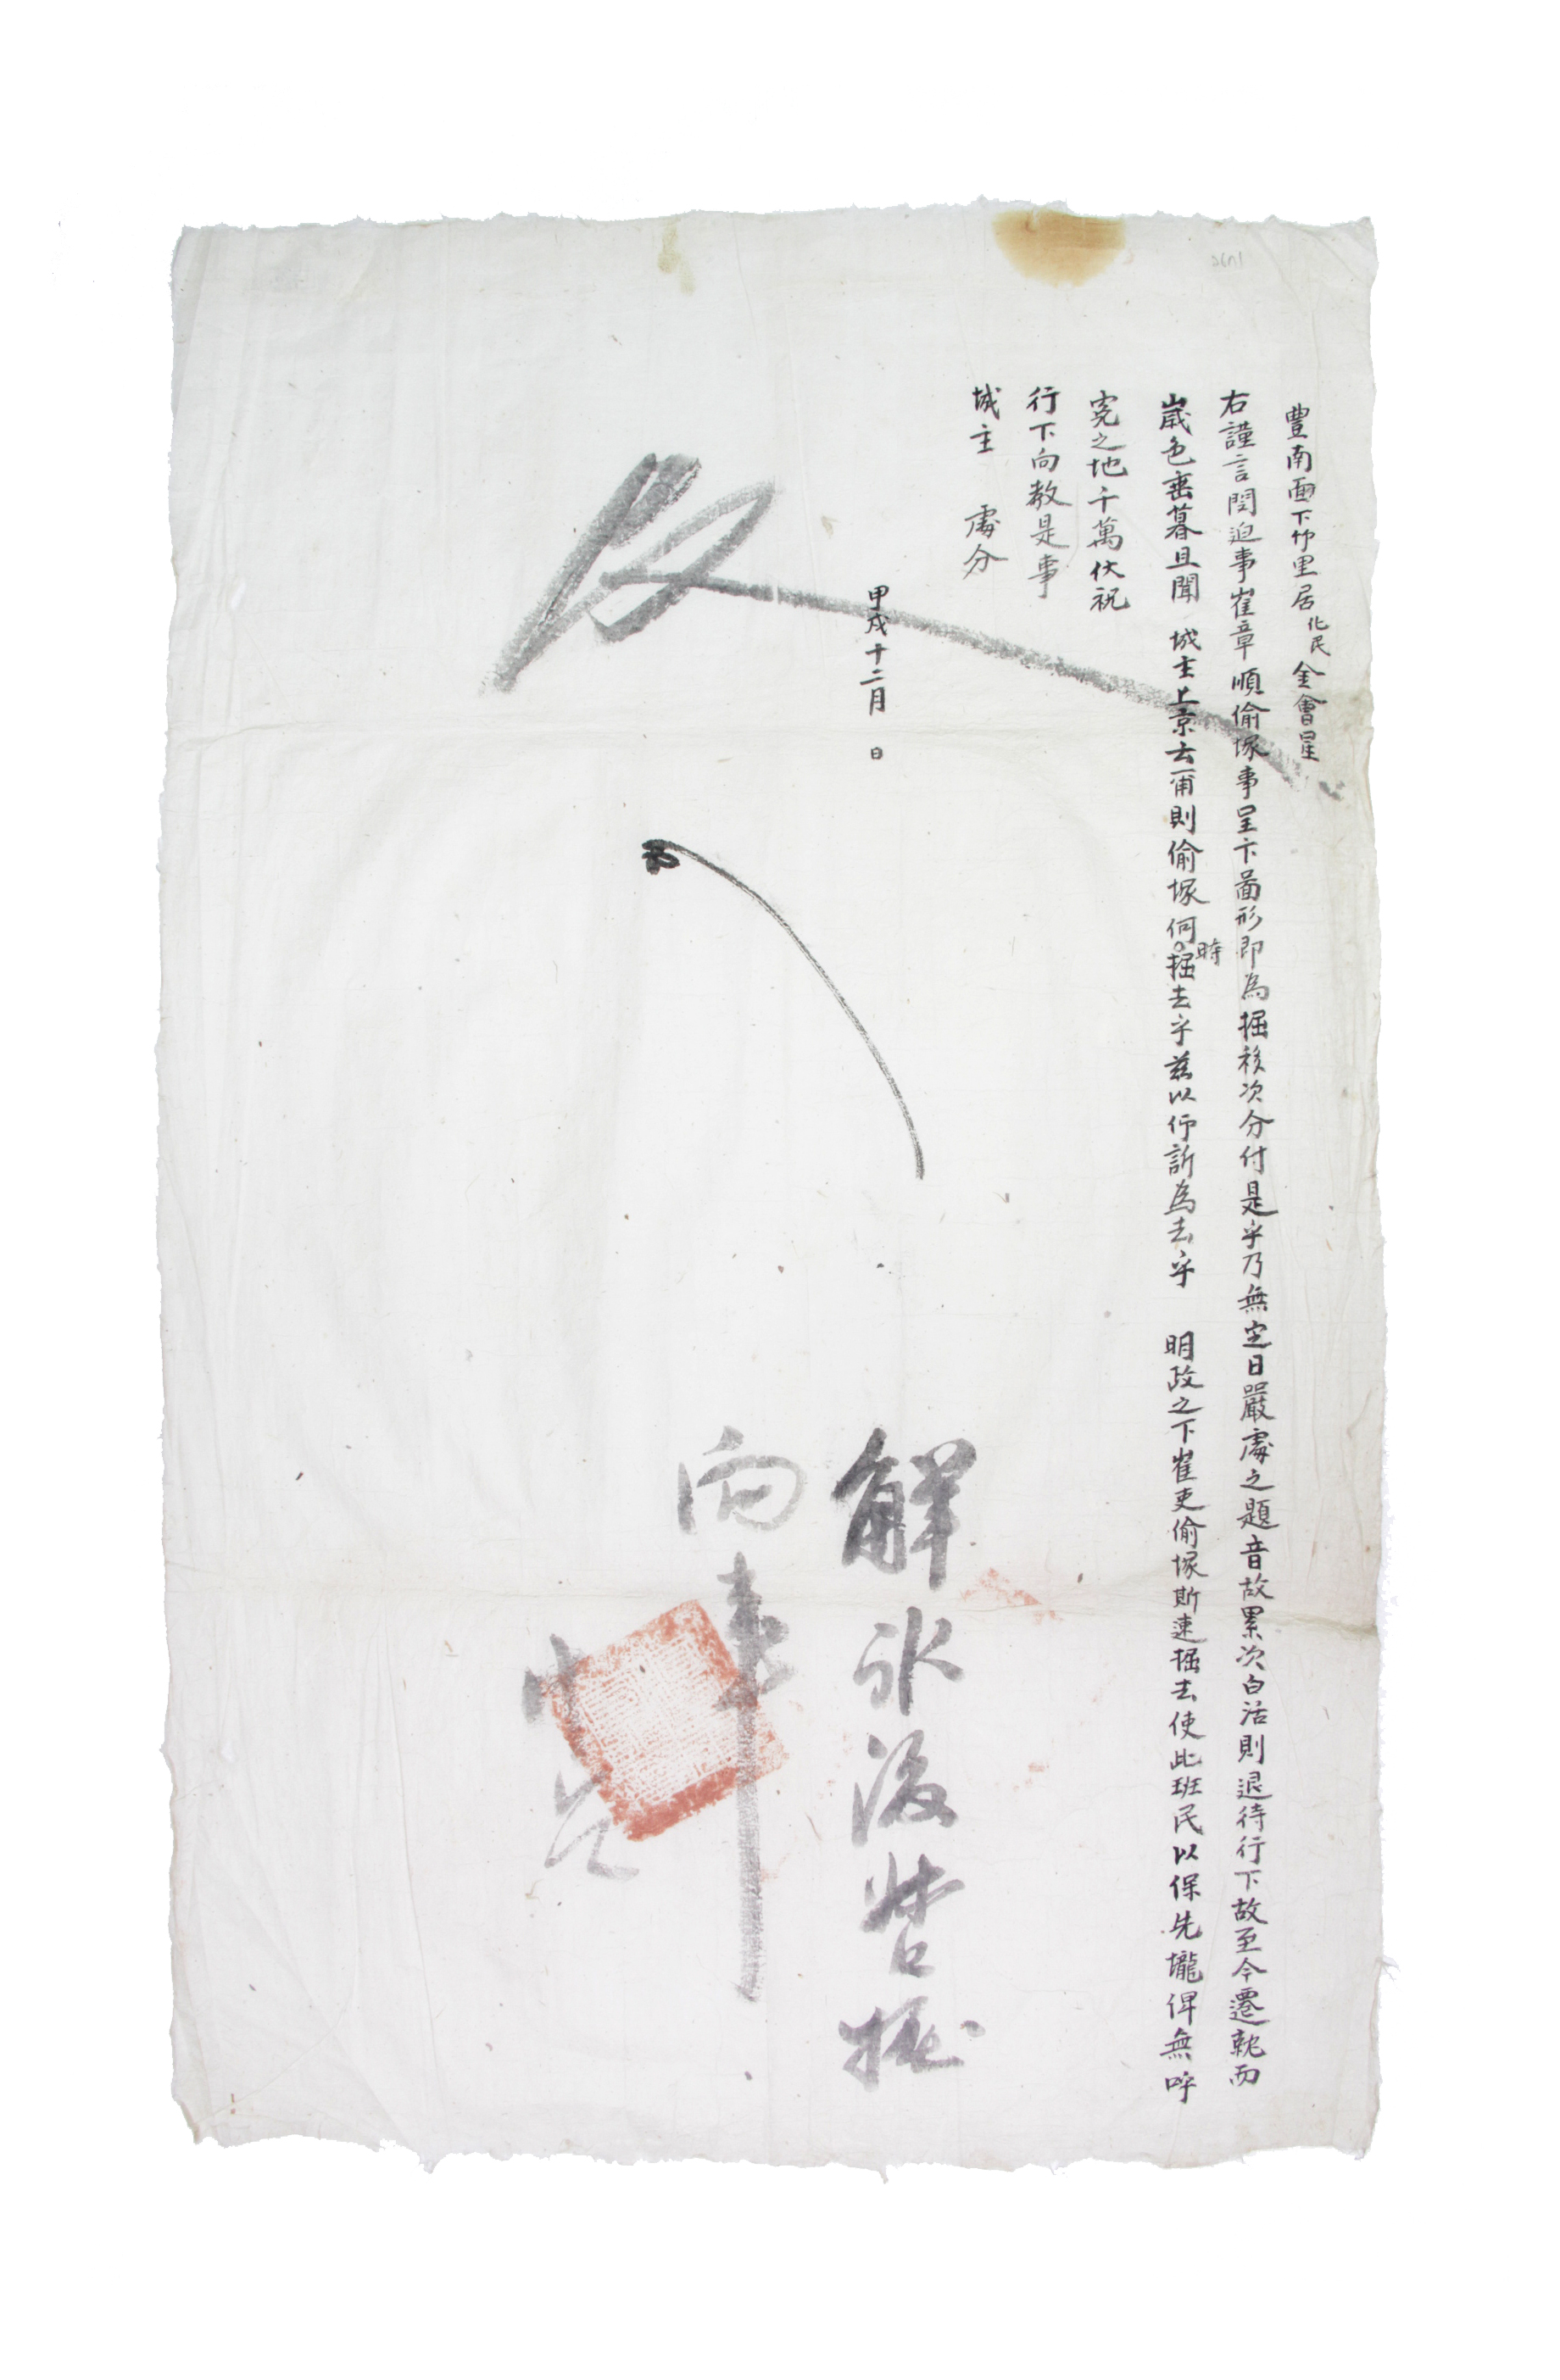 豊南面下竹里居化民金會星
右謹言悶迫事崔章順偸塚事呈卞啚形即為掘移次分付是乎乃無定日嚴處之題音故累次白活則退待行下故至今遷就而
歲色垂暮且聞 城主上京云爾則偸塚何時掘去乎茲以仰訴為去乎 明政之下崔吏偸塚斯速掘去使此班民以保先壠俾無呼
寃之地千萬伏祝
行下向教是事
城主 處分
甲戌十二月 日
解氷後督掘
向事